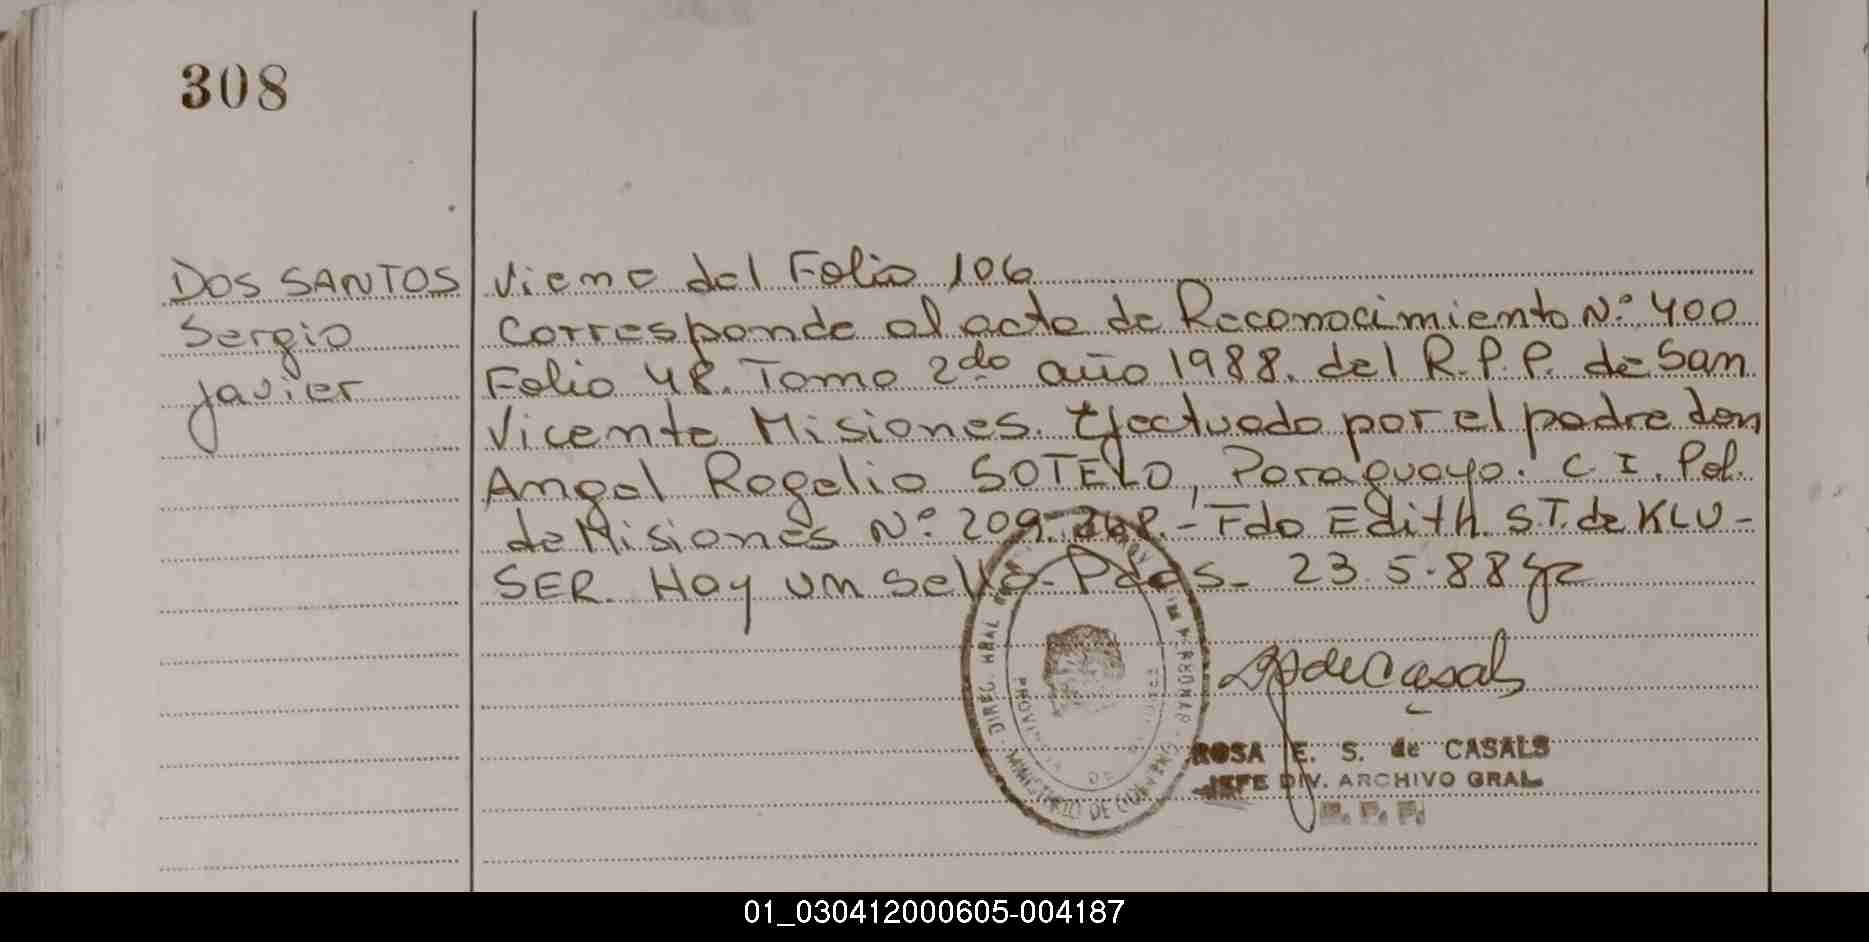 308
DOS SANTOS
Sergio
Javier
Viene del Folio 106
Corresponde al acta de Reconocimiento Nº 400
Folio 48. Tomo 2do año 1988. del R.P.P. de San
Vicente Misiones. Efectuado por el padre don
Angel Rogelio SOTELO, Paraguayo. C.I. Pol.
de Misiones Nº 209. - Fdo Edith S.T. de KLU-
SER. Hay un sello. Pdas. 23.5.88
de Casals
DIREC. GRAL
PROVINCIA DE
MINISTERIO DE GOBIERNO
ROSA E. S. de CASALS
JEFE DIV. ARCHIVO GRAL
R. P. P.
01_030412000605-004187